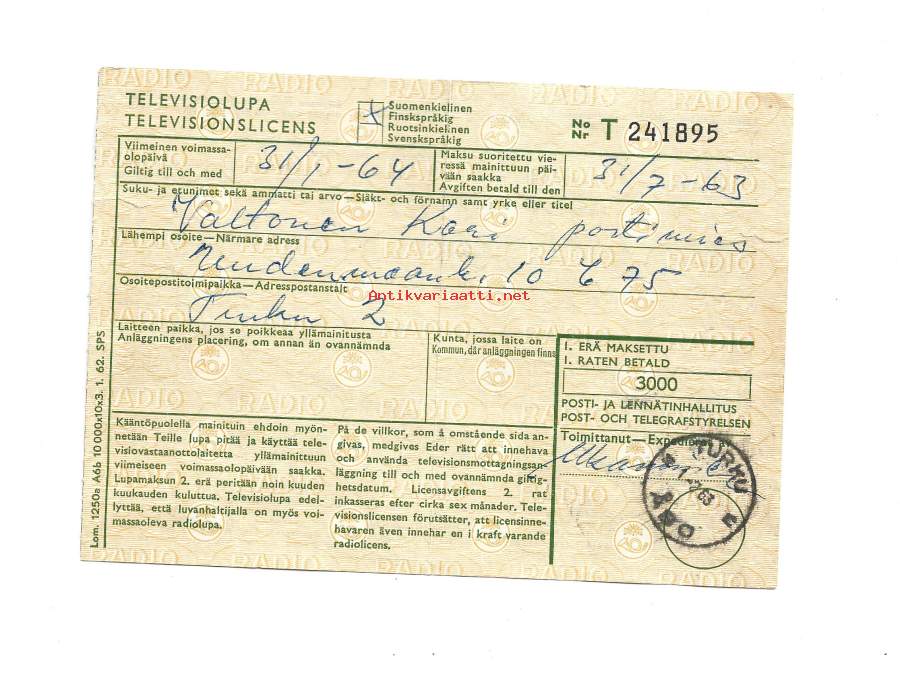 TELEVISIOLUPA
TELEVISIONSLICENS
X
Suomenkielinen
Finskspråkig
Ruotsinkielinen
Svenskspråkig
No
Nr T 241895
Viimeinen voimassa-
olopäivä
Giltig till och med
31/1-64
Maksu suoritettu vie-
ressä mainittuun päi-
vään saakka
Avgiften betald till den
31/7-63
Suku- ja etunimet sekä ammatti tai arvo—Släkt- och förnamn samt yrke eller titel
Valtonen Kari postimies
Lähempi osoite—Närmare adress
Uudenmaank. 10 75
Osoitepostitoimipaikka—Adresspostanstalt
Turku 2
Antikvariaatti.net
Laitteen paikka, jos se poikkeaa yllämainitusta
Anläggningens placering, om annan än ovannämnda
Kunta, jossa laite on
Kommun, där anläggningen finns
I. ERÄ MAKSETTU
I. RATEN BETALD
3000
POSTI- JA LENNÄTINHALLITUS
POST- OCH TELEGRAFSTYRELSEN
Toimittanut—Expedierat
TURKU
ÅBO
Kääntöpuolella mainituin ehdoin myön-
netään Teille lupa pitää ja käyttää tele-
visiovastaanottolaitetta yllämainittuun
viimeiseen voimassaolopäivään saakka.
Lupamaksun 2. erä peritään noin kuuden
kuukauden kuluttua. Televisiolupa edel-
lyttää, että luvanhaltijalla on myös voi-
massaoleva radiolupa.
På de villkor, som å omstående sida an-
givas, medgives Eder rätt att innehava
och använda televisionsmottagningsan-
läggning till och med ovannämnda giltig-
hetsdatum. Licensavgiftens 2. rat
inkasseras efter cirka sex månader. Tele-
visionslicensen förutsätter, att licensinne-
havaren även innehar en i kraft varande
radiolicens.
Lom. 1250a A6b 10 000x10x3. 1. 62. SPS
RADIO